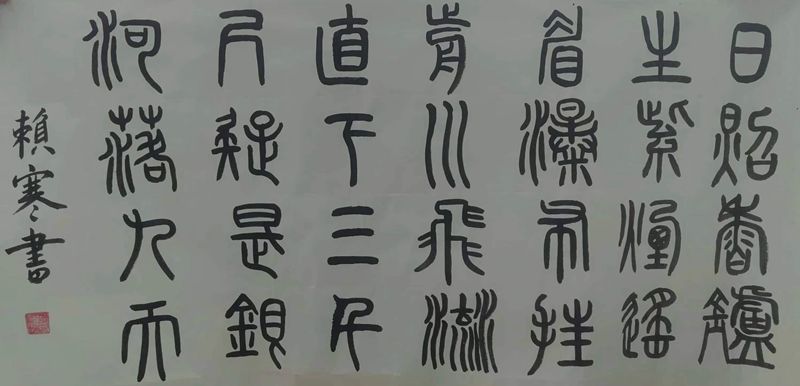 日照香鑪
生紫煙遙
看瀑布挂
前川飛流
直下三千
尺疑是銀
河落九天
賴寒書